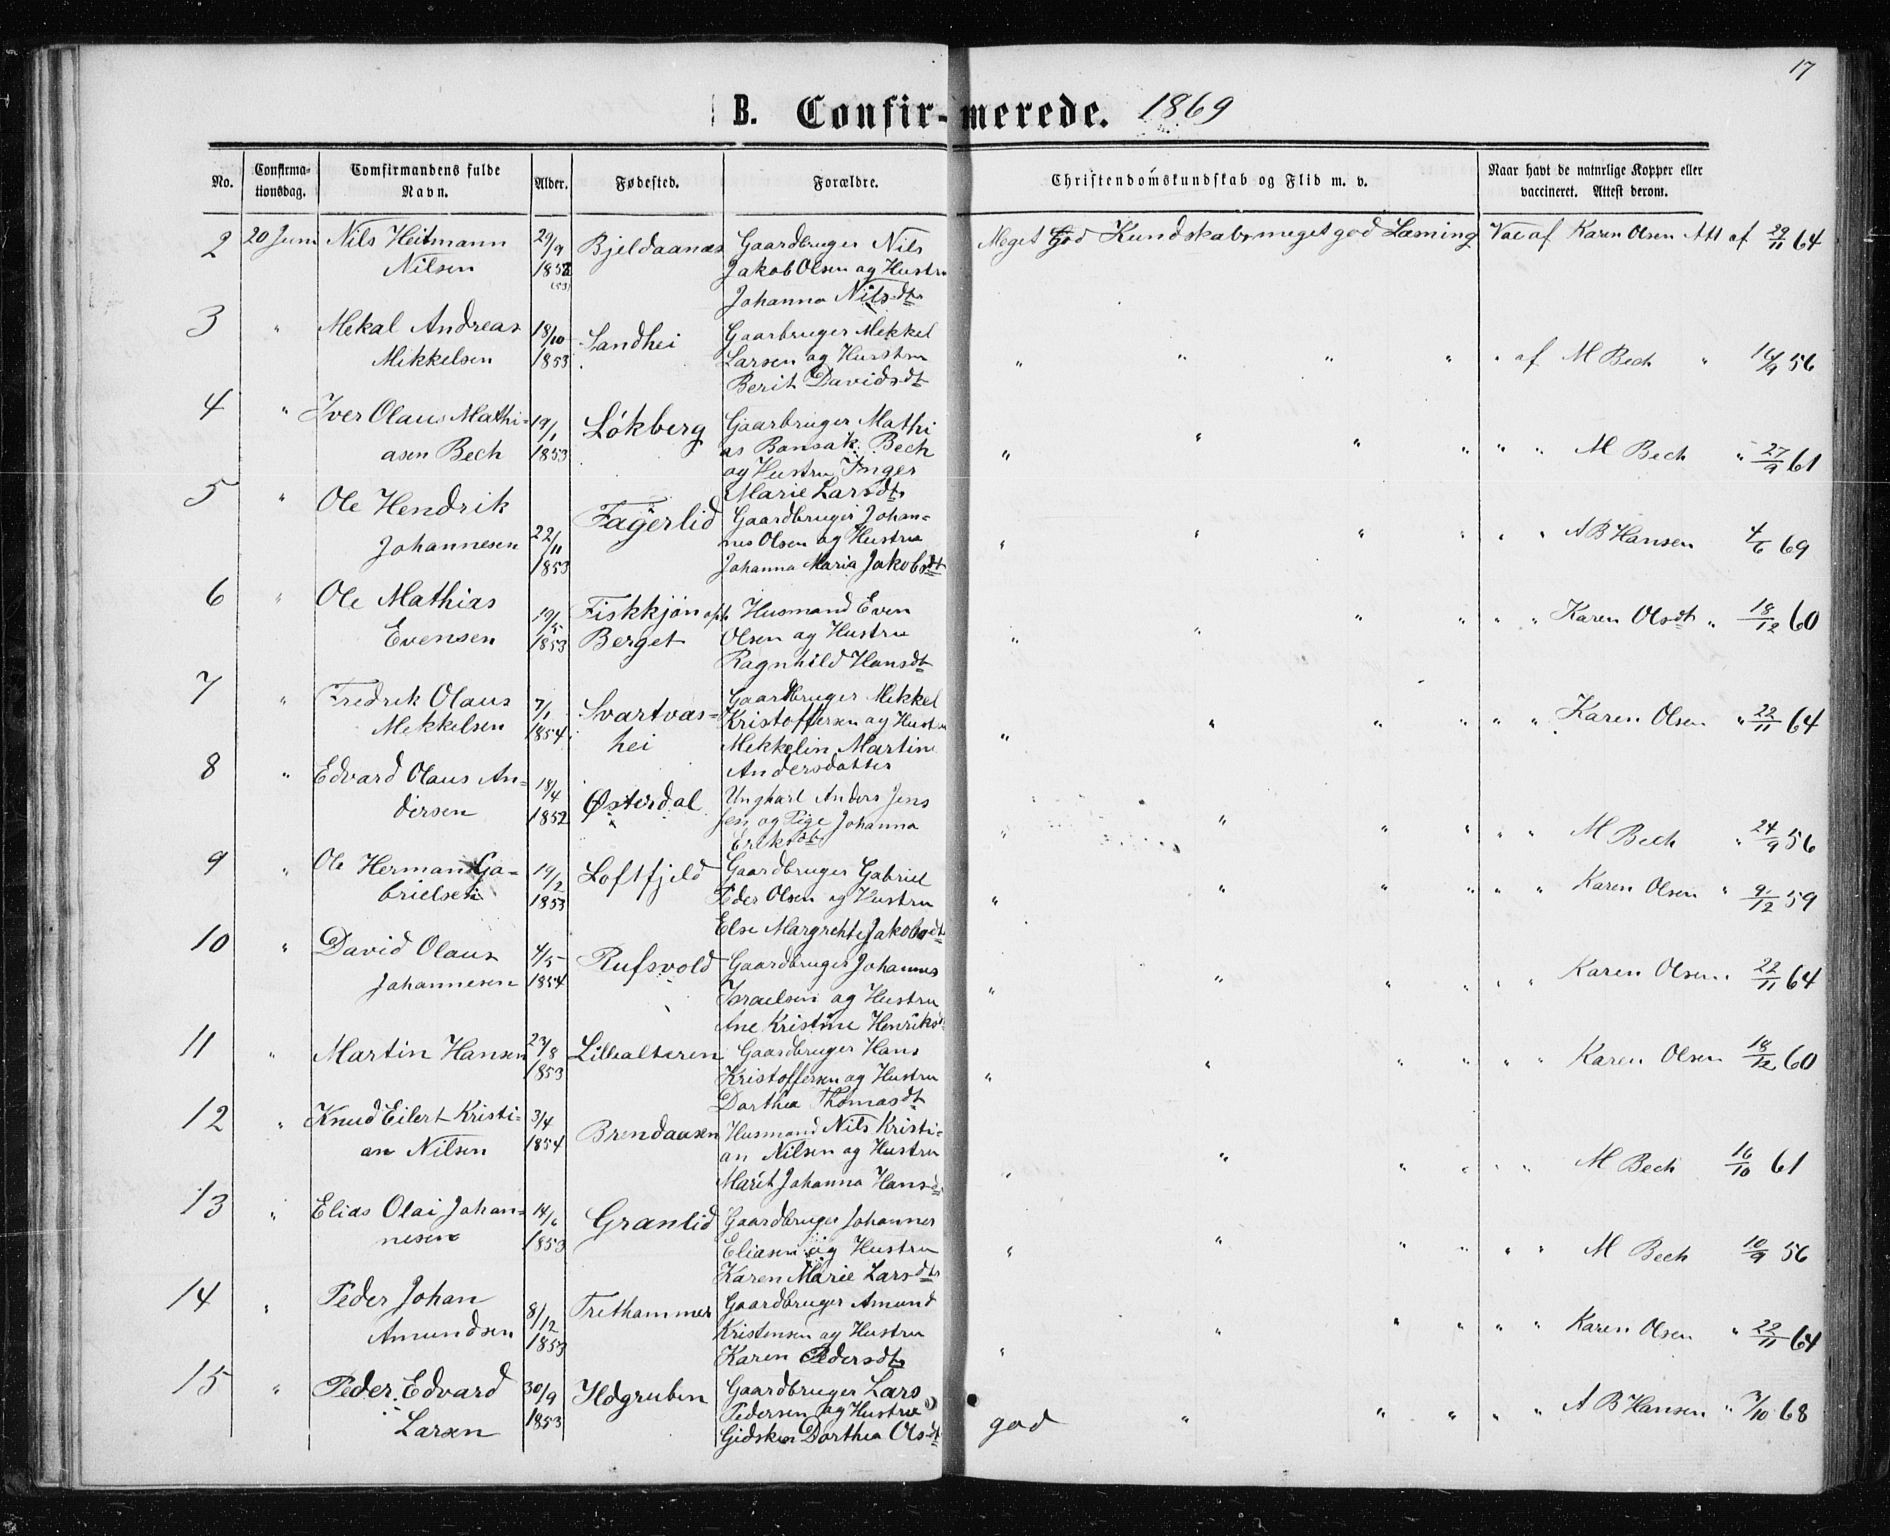 17
B. Confir-merede. 1869
No.
Confirma-
tionsdag.
Tomfirmandens fulde
Navn.
Alder.
Fødested.
Forældre.
Christendomskundskab og Flid m. v.
Naar havt de naturlige Kopper eller
vaccineret. Attest derom.
2 20 Juni Nils Heitmann 29/9 Bjeldaanæs Gaardbruger Nils Meget God Kundskab, meget god Læsning Vac af Karen Olsen Att af 29/11 64
Nilsen 1852 Jakob Olsen og Hustru
(53) Johanna Nilsdtr
3 " Mekal Andreas 18/10 Sandhei Gaarbruger Mekkel
Mikkelsen 1853 Larsen og Hustru " " " " " af M Bech " 16/9 56
Berit Davidsdt
4 " Iver Olaus Mathi- 19/1 Løkberg Gaarbruger Mathi
asen Bech 1853 as Bonsak Bech " " " " " " M Bech " 27/9 61
og Hustru Inger
Marie Larsdtr
5 " Ole Hendrik 22/11 Fagerlid Gaardbruger Johan-
Johannesen 1853 nes Olsen og Hustru " " " " " " A B Hansen 4/6 69
Johanna Maria Jakobsdt
6 " Ole Mathias 19/5 Fiskkjøn Husmand Even
Evensen 1853 Berget Olsen og Hustru " " " " " " Karen Olsdt " 18/12 60
Ragnhild Hansdt
7 " Fredrik Olaus 7/1 Svartvas- Gaardbruger Mekkel
Mekkelsen 1854 hei Kristoffersen og Hustru " " " " " " Karen Olsen " 22/11 64
Mekkelin Martine
Andersdatter
8 " Edvard Olaus An- 18/4 Østerdal Ungkarl Anders Jens
dersen 1852 sen og Pige Johanna " " " " " " M Bech " 24/9 56
Eriksdtr
9 " Ole Herman Ga- 19/2 Loftfjeld Gaardbruger Gabriel
brielsen 1853 Peder Olsen og Hustru " " " " " " Karen Olsen " 9/12 59
Else Margrehte Jakobsdt
10 " David Olaus 4/5 Rufsvold Gaardbruger Johannes
Johannesen 1854 Israelsen og Hustru " " " " " " Karen Olsen 22/11 64
Ane Kristine Henriksdt
11 " Martin Hansen 23/8 Lillealteren Gaardbruger Hans
1853 Kristoffersen og Hustru " " " " " " Karen Olsen 18/12 60
Dorthea Thomasdt
12 " Knud Eilert Kristi- 3/4 Brendaasen Husmand Nils Kristi-
an Nilsen 1854 an Nilsen og Hustru " " " " " " M Bech 16/10 61
Marit Johanna Hansdt
13 " Elias Olai Johan- 14/6 Granlid Gaardbruger Johannes
nesen 1853 Eliasen og Hustru " " " " " " M Bech 10/9 56
Karen Marie Larsdtr
14 " Peder Johan 8/12 Trethammer Gaardbruger Amund
Amundsen 1853 Kristensen og Hustru " " " " " " Karen Olsen " 22/11 64
Karen Pedersdtr
15 " Peder Edvard 30/9 Ildgruben Gaardbruger Lars
Larsen 1853 Pedersen og Hustru god " " " " " A B Hansen " 7/10 68
Gidsken Dorthea Olsdt